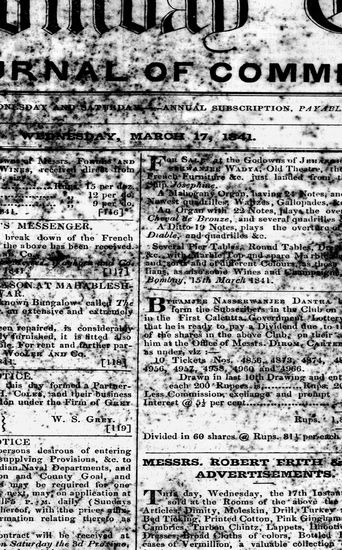 ombay
URNAL OF COMM
NESDAY AND SATURDAY.—ANNUAL SUBSCRIPTION, PAYABL
WEDNESDAY, MARCH 17, 1841.
of Messrs. FORBES AND
WINES, received direct from
15 per doz.
12 per
9 per
do.
[116]
'S MESSENGER.
break down of the French
the above has been received
1841. [117]
SSON AT MAHABLESH-
WAR.
known Bungalow called The
an extensive and extremely
been repaired, is considerably
furnished, it is fitted also
For rent and further par-
WOOLER AND Co.
[118]
OTICE.
this day formed a Partner-
H. COLES, and their business
tion under the Firm of GREY
W. S. GREY.
[119]
OTICE
persons desirous of entering
supplying Provisions, &c. to
Indian Naval Departments, and
on and County Goal, and
may be required for one
next, may, on application at
P. M. daily (Sundays
hereof, with the prices
ormation relating thereto as
ontract will be received at
on Saturday the 3d Proximo,
FOR SALE at the Godowns of
WADYA, Old Theatre,
French Furniture &c. just landed from
Ship Josephine.
A Mahogany Organ, having 24 Notes, and
Newest quadrilles, Waltzes, Gallopades, &c
An Organ with 22 Notes, plays the over
Cheval de Bronze, and several quadrilles
A Ditto 19 Notes, plays the overture
Diable, and quadrilles &c.
Several Pier Tables, Round Tables,
&c. with Marble Top and spare Marble
and sorts and different Colours, as
lians, as also some Wines and Champaign
Bombay, 15th March 1841.
BYRAMJEE NASSERWANJEE DANTRA
form the Subscribers in the Club on
in the First Calcutta Government Lottery
that he is ready to pay a Dividend due to
of the shares in the above Club, on their
him at the Office of Messrs. DIROM, CARTER
as under, viz :—
10 Tickets Nos. 4856, 4873, 4874,
4956, 4957, 4958, 4960 and 4966.
Drawn in last 10th Drawing and ent
each 200 Rups.
Less Commission, exchange and prompt
Interest @ 5½ per cent.
Rups.
Divided in 60 shares @ Rups. 81½ per each
MESSRS. ROBERT FRITH &
ADVERTISEMENTS.
THIS day, Wednesday, the 17th Instant
sold at the Rooms of the above
Articles, Dimity, Moleskin, Drill, Turkey
Bed Ticking, Printed Cotton, Pink Gingham
Cambrics, Turban Chintz, Lappets,
Dresses, Broad Cloths of colors, Bottled
cases of Vermillion, a valuable collection